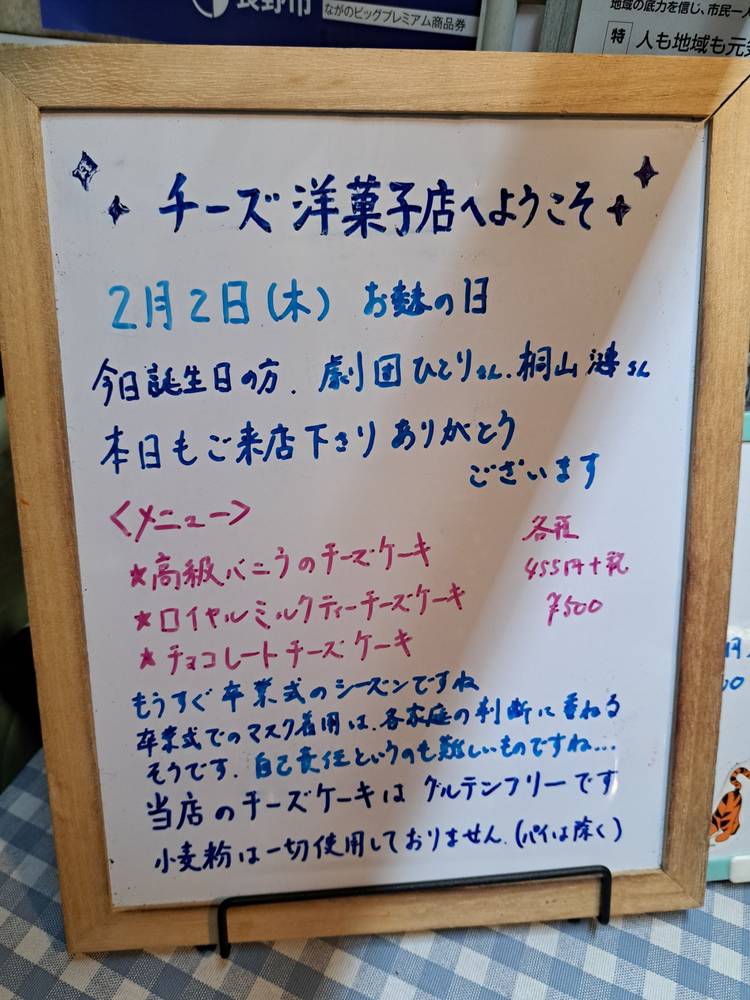 長野市
ながのビッグプレミアム商品券
地域の底力を信じ、市民一人
特 人も地域も元気
チーズ洋菓子店へようこそ
2月2日(木) お麩の日
今日誕生日の方、劇団ひとりさん、桐山漣さん
本日もご来店下さり ありがとう
ございます
<メニュー>
各種
★高級バニラのチーズケーキ
455円+税
★ロイヤルミルクティーチーズケーキ
¥500
★チョコレートチーズケーキ
もうすぐ卒業式のシーズンですね
卒業式でのマスク着用は、各家庭の判断に重ねる
そうです。自己責任というのも難しいものですね…
当店のチーズケーキは グルテンフリーです
小麦粉は一切使用しておりません。(パイは除く)